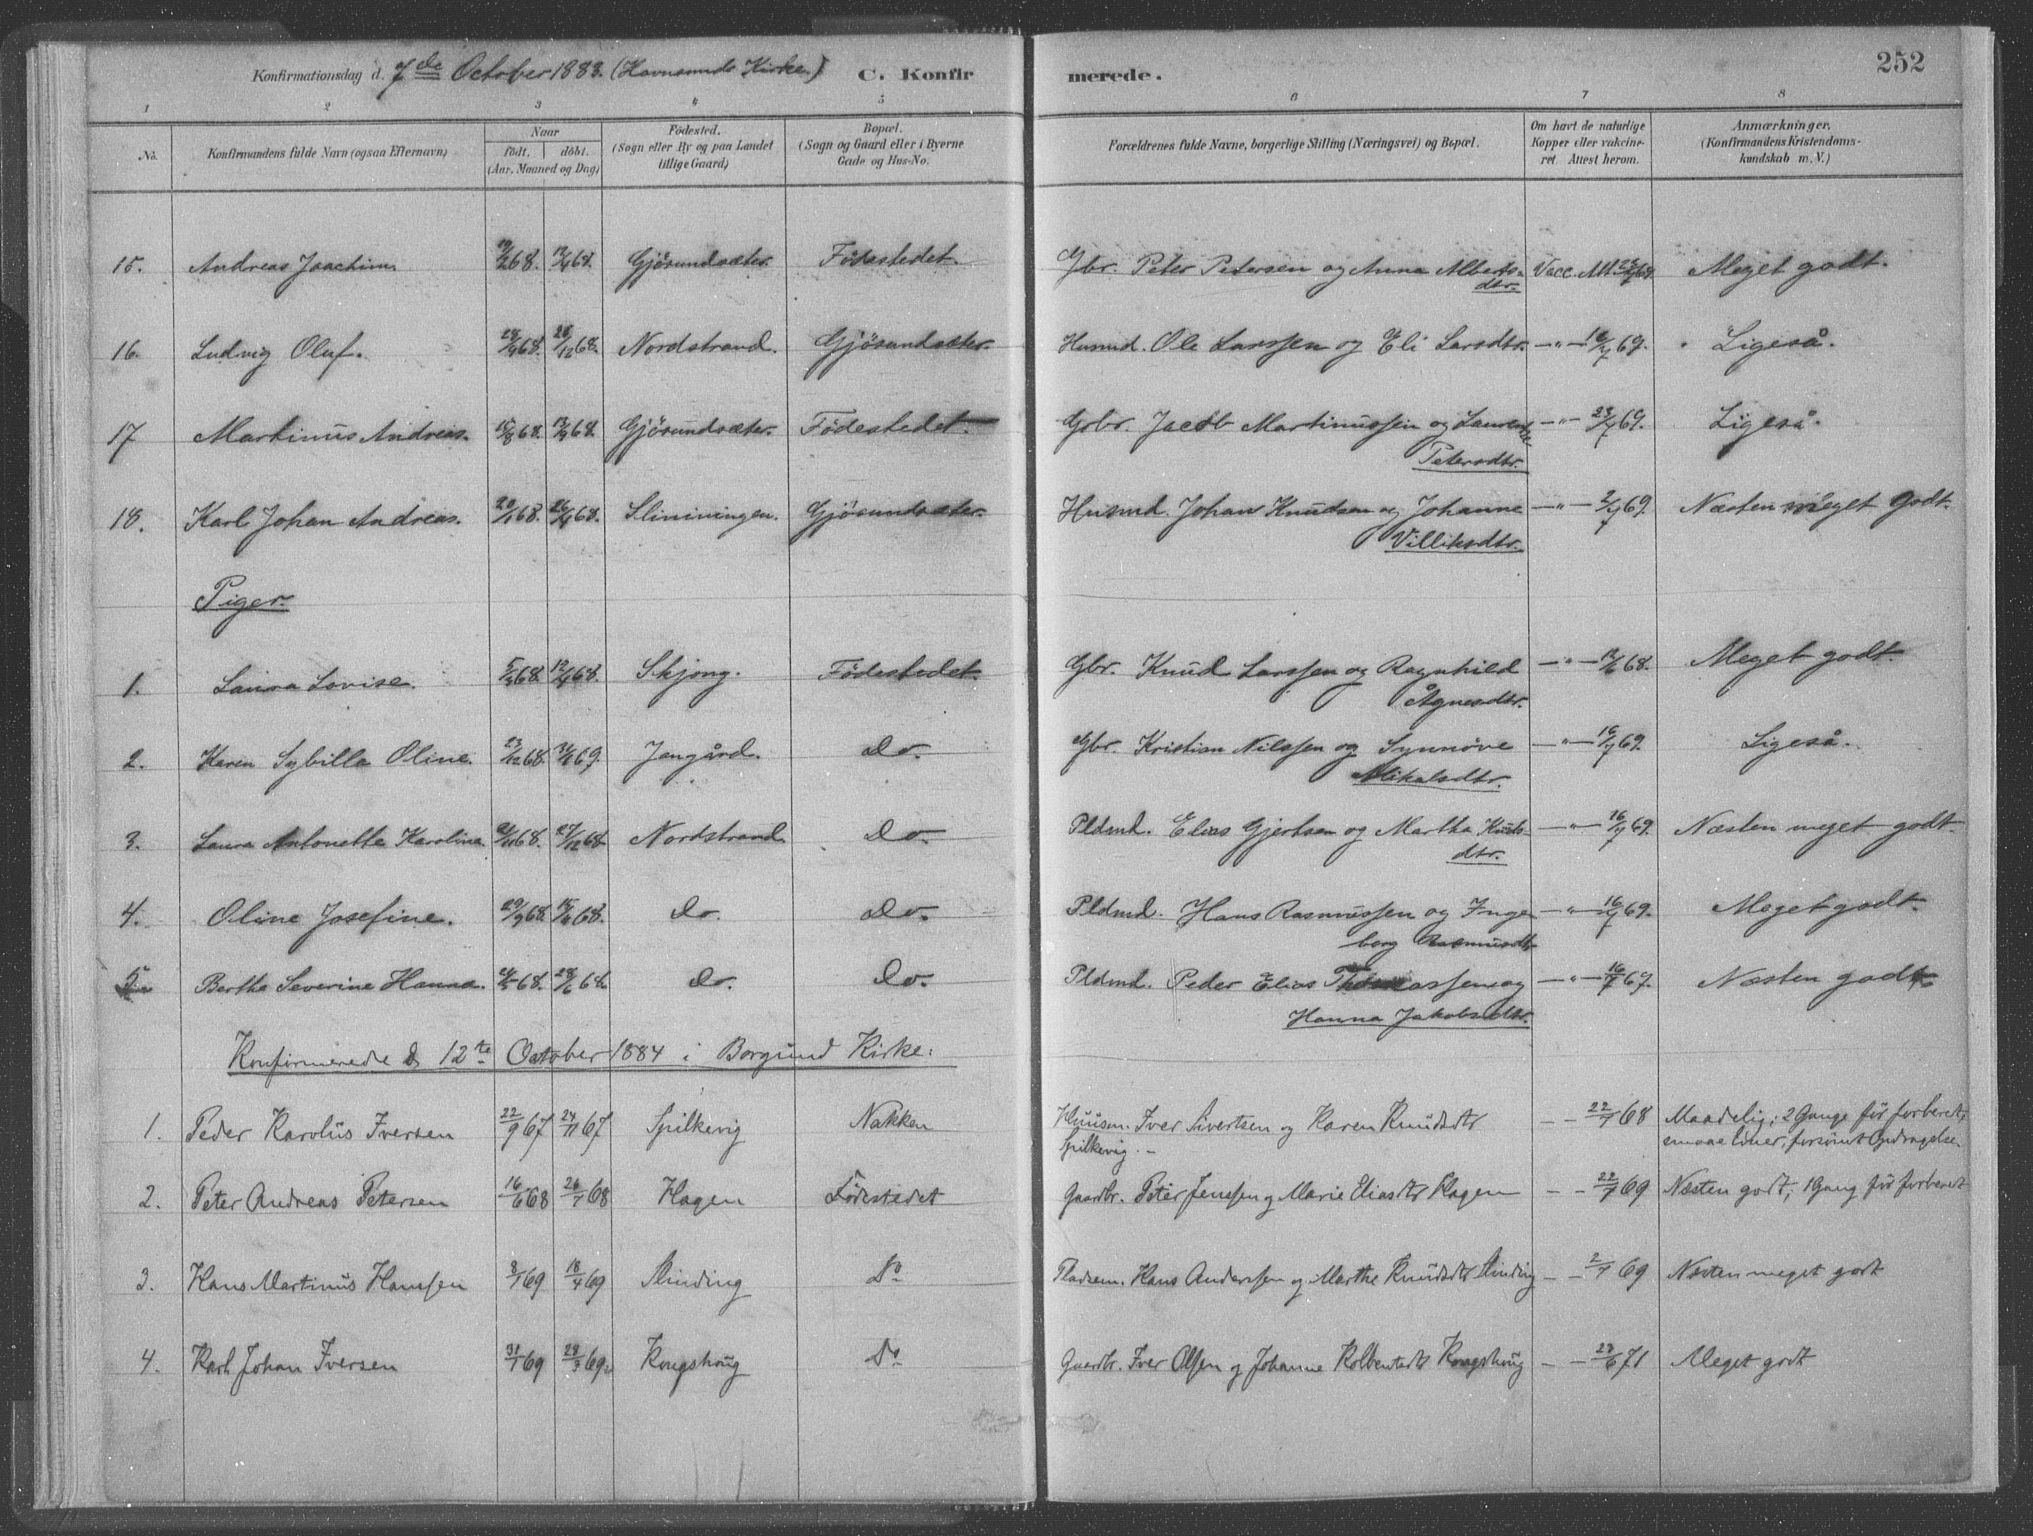 252
Konfirmationsdag d. 7de October 1883. (Havnsunds Kirke.) C. Konfirmerede.
1 2 3 4 5 6 7 8
No. Konfirmandens fulde Navn (ogsaa Efternavn) Naar født, døbt. (Aar, Maaned og Dag) Fødested. (Sogn eller By og paa Landet tillige Gaard) Bopæl. (Sogn og Gaard eller i Byerne Gade og Hus-No. Forældrenes fulde Navne, borgerlige Stilling (Næringsvei) og Bopæl. Om havt de naturlige Kopper eller vakcineret. Attest herom. Anmærkninger. (Konfirmandens Kristendomskundskab m. V.)
15. Andreas Joachim. 19/2 68. 12/4 68. Gjøsundsæter. Fødestedet. Gbr. Peter Petersen og Anna Albertsdtr. Vacc. Att. 68. Meget godt.
16. Ludvig Oluf. 28/9 68. 28/12 68. Nordstrand. Gjøsundsæter. Husmd. Ole Larssen og Eli Larsdtr. —"— 69. Ligeså.
17 Martinus Andreas. 15/8 68. 68. Gjøsundsæter. Fødestedet. Grbr. Jacob Martinussen og Petersdtr. —"— 23/7 69. Ligeså.
18. Karl Johan Andreas. 20/1 68. 26/4 68. Slininingen. Gjøsundsæter. Husmd. Johan Knudsen og Johanne Villiksdtr. —"— 2/7 69. Næsten meget godt.
Piger.
1. Laura Lovise. 5/3 68. 12/4 68. Skjong. Fødestedet. Gbr. Knud Larssen og Ragnhild Ågnesdtr. —"— 68. Meget godt.
2. Karen Sybilla Oline. 23/12 68. 69. Jangård. Do. Gbr. Kristian Nilssen og Synnøve Mikalsdtr. —"— 16/7 69. Ligeså.
3. Laura Antonette Karoline. 68. 27/12 68. Nordstrand. Do. Pldmd. Elias Gjertsen og Martha Knutsdtr. —"— 16/7 69. Næsten meget godt.
4. Oline Josefine. 29/9 68. 68. Do. Do. Pldmd. Hans Rasmussen og Ingeborg Rasmusdtr. —"— 16/7 69. Meget godt.
5 Berthe Severine Hanna. 68. 28/6 68. Do. Do. Pldmd. Peder Elias Thomassen og Hanna Jakobsdtr. —"— 16/7 69. Næsten godt.
Konfirmerede d 12te October 1884 i Borgund Kirke:
1. Peder Karolus Iversen 22/9 67 24/11 67 Spilkevig Nakken Huusm. Iver Sivertsen og Karen Knudsdtr Spilkevig. – – 22/7 68 Maadelig; 2 Gange før forberedt,
2. Peter Andreas Petersen 16/6 68 26/7 68 Hagen Fødestedet Gaardbr. Peter Jenssen og Marie Eliasdtr Hagen – – 22/7 69 Næsten godt, 1 Gang før forberedt
3. Hans Martinus Hanssen 8/1 69 18/4 69 Slinding Do Pladsem. Hans Anderssen og Marthe Knudsdtr Slinding – – 2/7 69 Næsten meget godt
4. Karl Johan Iversen 31/1 69 28/3 69 Kongshoug Do Gaardbr. Iver Olsen og Johanne Kolbentsdtr Kongshoug – – 28/6 71 Meget godt